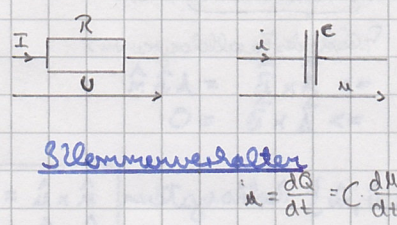 R C
I i
U u
Klemmenverhalten
i = dQ/dt = C · du/dt